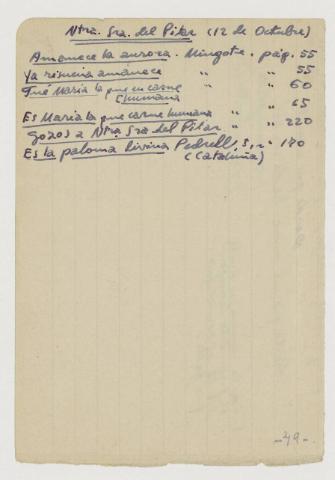 Ntra. Sra. del Pilar (12 de Octubre)
Amanece la aurora. Mingote. pág. 55
Ya risueña amanece " " 55
Fué María la que en carne " " 60
humana
" " 65
Es María la que carne humana " " 220
Gozos a Ntra. Sra. del Pilar "
Es la paloma divina Pedrell, 170
(Cataluña)
-49-